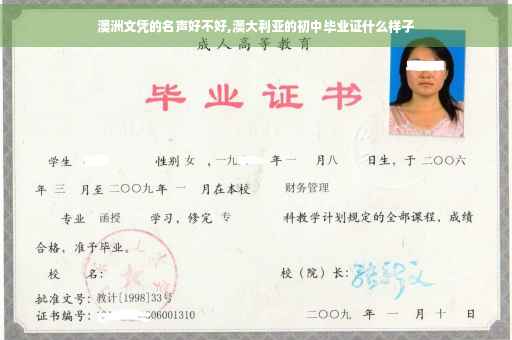 澳洲文凭的名声好不好,澳大利亚的初中毕业证什么样子
成人高等教育
毕业证书
学生 性别 女 ,一九 年一 月八 日生,于二〇〇六
年 三 月至二〇〇九年 一 月在本校 财务管理
专业 函授 学习,修完 专 科教学计划规定的全部课程,成绩
合格,准予毕业。
校 名: 校(院)长:
批准文号:教计[1998]33号
证书编号: 06001310 二〇〇九 年 一 月 十 日